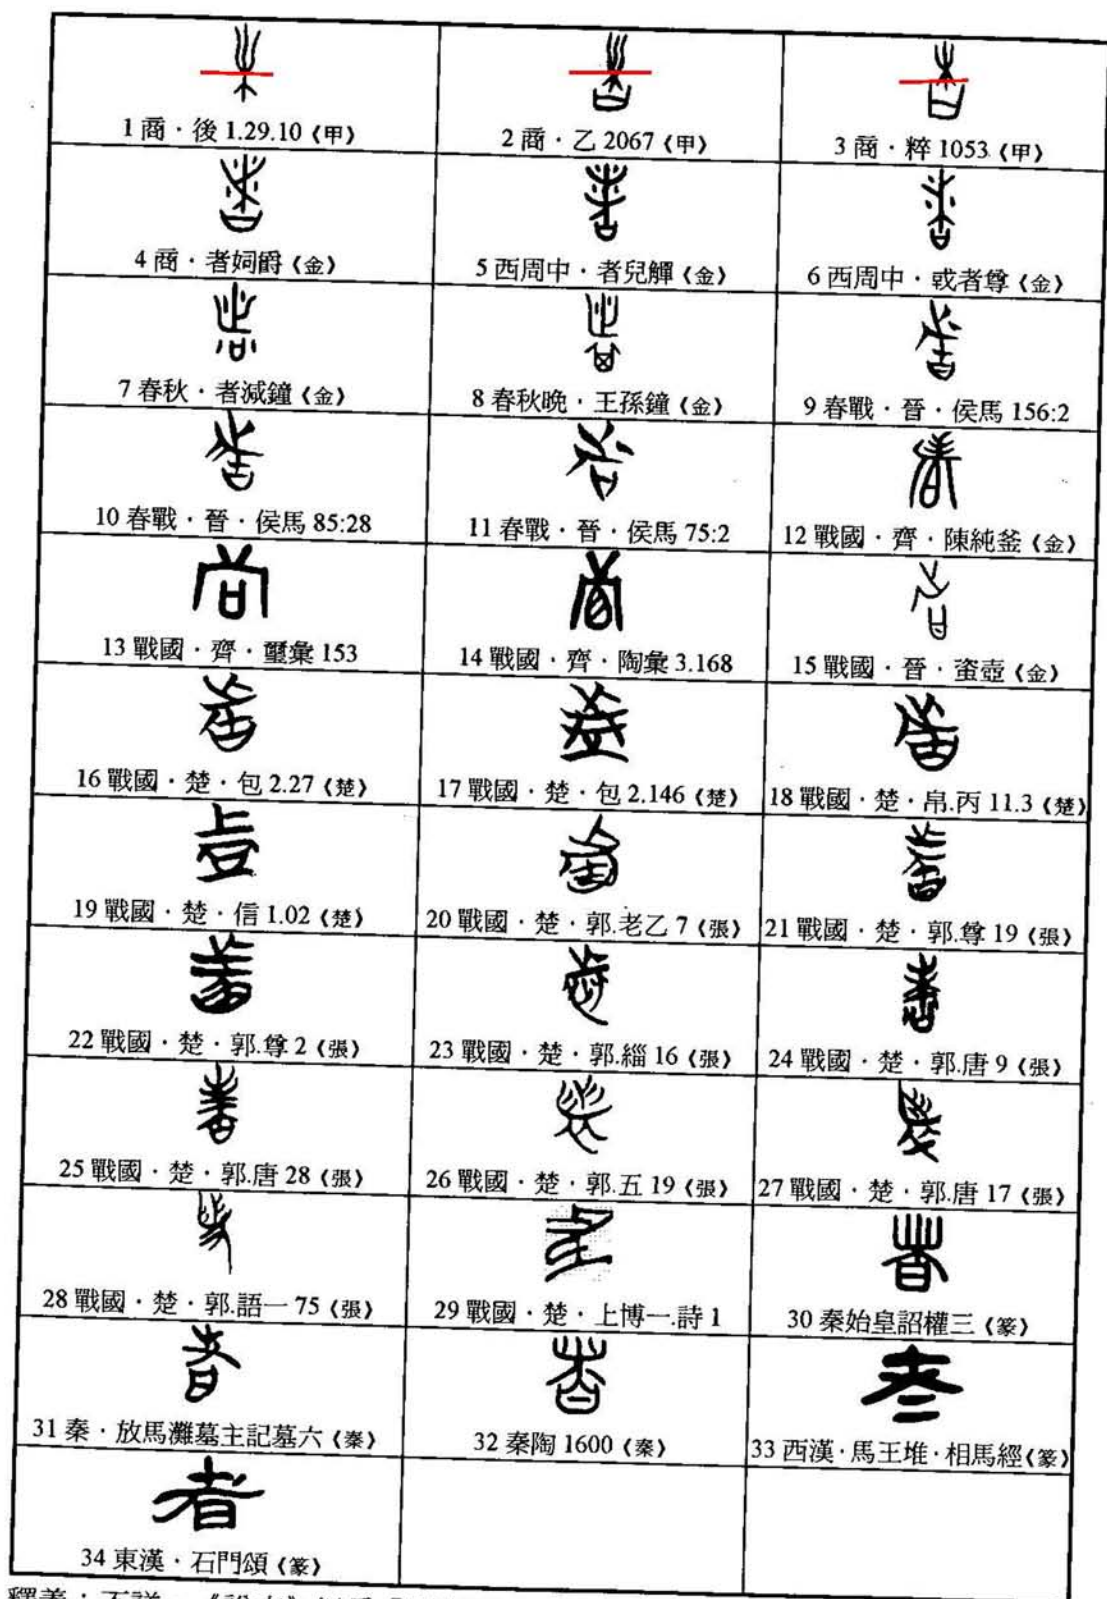 1 商．後 1.29.10《甲》
2 商．乙 2067《甲》
3 商．粹 1053《甲》
4 商．者姛爵《金》
5 西周中．者兒觶《金》
6 西周中．㦰者尊《金》
7 春秋．者減鐘《金》
8 春秋晚．王孫鐘《金》
9 春戰．晉．侯馬 156:2
10 春戰．晉．侯馬 85:28
11 春戰．晉．侯馬 75:2
12 戰國．齊．陳純釜《金》
13 戰國．齊．璽彙 153
14 戰國．齊．陶彙 3.168
15 戰國．晉．䖵壺《金》
16 戰國．楚．包 2.27《楚》
17 戰國．楚．包 2.146《楚》
18 戰國．楚．帛.丙 11.3《楚》
19 戰國．楚．信 1.02《楚》
20 戰國．楚．郭.老乙 7《張》
21 戰國．楚．郭.尊 19《張》
22 戰國．楚．郭.尊 2《張》
23 戰國．楚．郭.緇 16《張》
24 戰國．楚．郭.唐 9《張》
25 戰國．楚．郭.唐 28《張》
26 戰國．楚．郭.五 19《張》
27 戰國．楚．郭.唐 17《張》
28 戰國．楚．郭.語一 75《張》
29 戰國．楚．上博一.詩 1
30 秦始皇詔權三《篆》
31 秦．放馬灘墓主記墓六《秦》
32 秦陶 1600《秦》
33 西漢．馬王堆．相馬經《篆》
者
34 東漢．石門頌《篆》